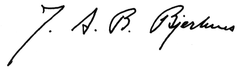 J. A. B. Bjerknes